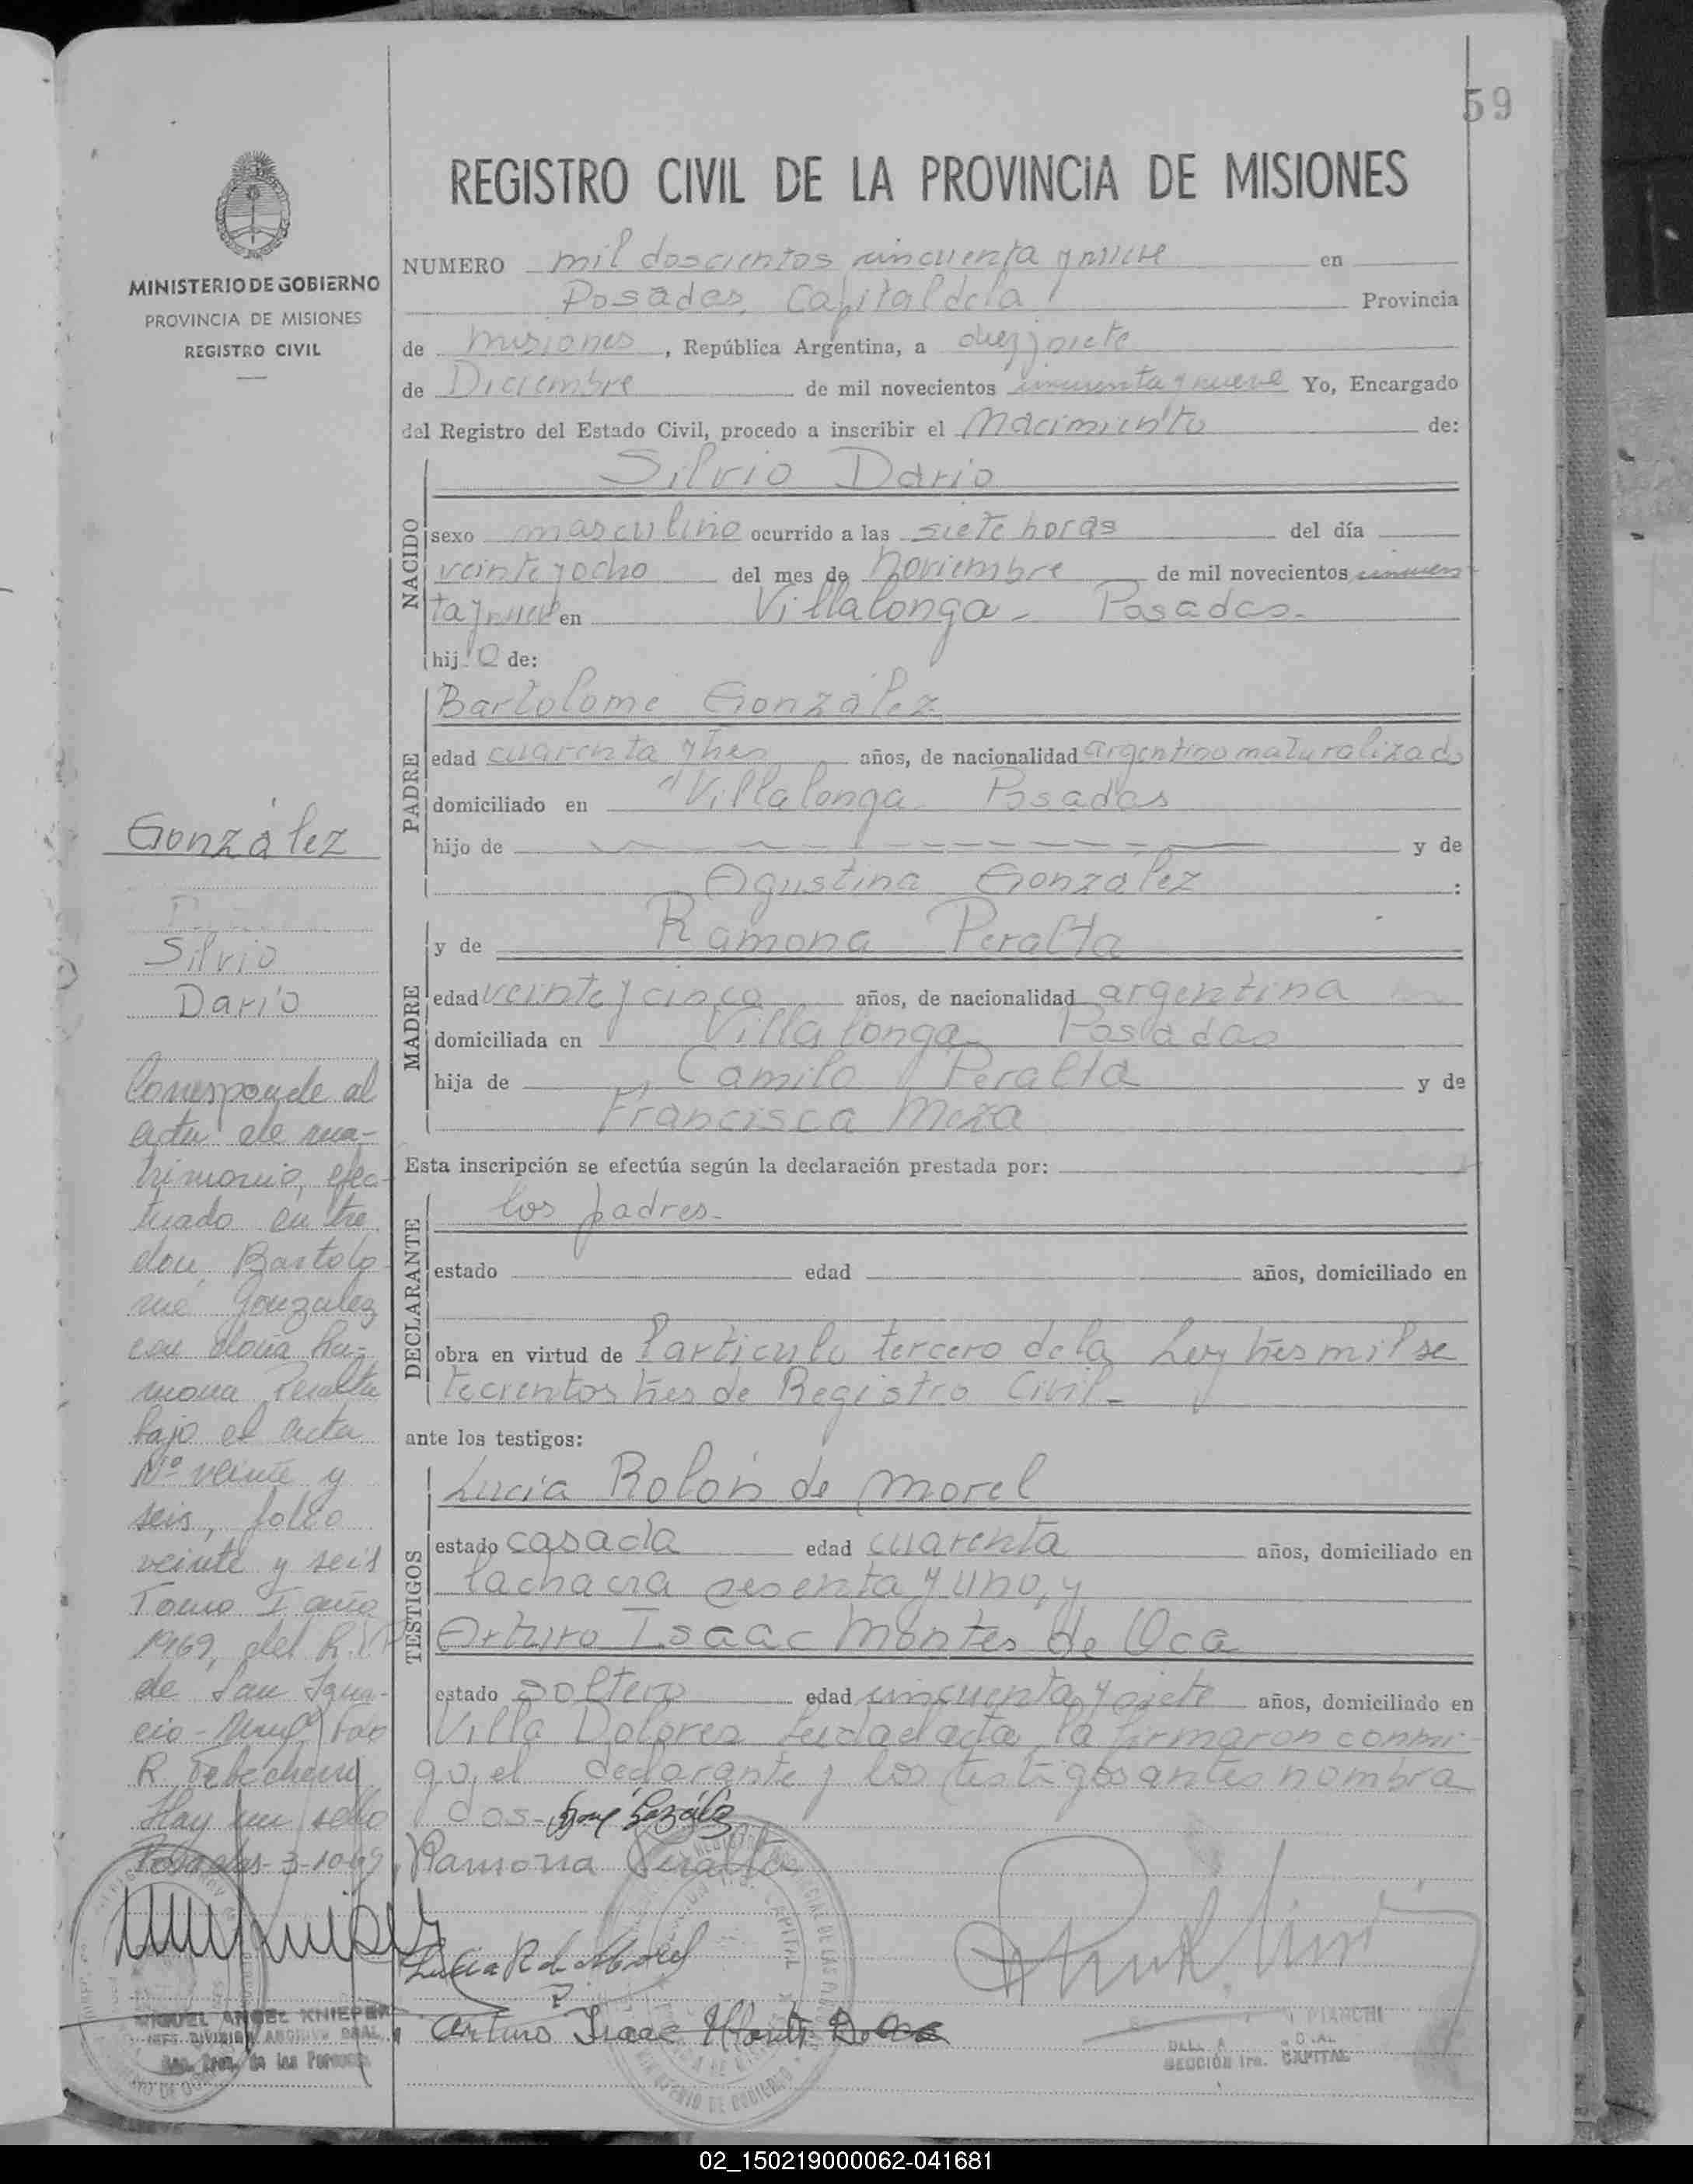 59
REGISTRO CIVIL DE LA PROVINCIA DE MISIONES
MINISTERIO DE GOBIERNO
PROVINCIA DE MISIONES
REGISTRO CIVIL
NUMERO mil doscientos cincuenta y nueve en
Posadas, Capital de la Provincia
de Misiones, República Argentina, a diez y siete
de Diciembre de mil novecientos cincuenta y nueve Yo, Encargado
del Registro del Estado Civil, procedo a inscribir el Nacimiento de:
Silvio Dario
NACIDO
sexo masculino ocurrido a las siete horas del día
veinte y ocho del mes de Noviembre de mil novecientos cincuen
ta y nueve en Villalonga - Posadas.
hijo de:
Bartolome González
PADRE
edad cuarenta y tres años, de nacionalidad argentino naturalizado
domiciliado en Villalonga Posadas
hijo de y de
Agustina González :
y de Ramona Peralta
MADRE
edad veinte y cinco años, de nacionalidad argentina
domiciliada en Villalonga Posadas
hija de Camilo Peralta y de
Francisca Meza
Esta inscripción se efectúa según la declaración prestada por:
los padres-
DECLARANTE
estado edad años, domiciliado en
obra en virtud de l'articulo tercero de la Ley tres mil se
tecientos tres de Registro Civil-
ante los testigos:
Lucia Rolón de Morel
TESTIGOS
estado casada edad cuarenta años, domiciliado en
la chacra sesenta y uno, y
Arturo Isaac Montes de Oca
estado soltero edad cincuenta y siete años, domiciliado en
Villa Dolores Leida el acta, la firmaron conmi
go, el declarante y los testigos antes nombra
dos-
Ramona Peralta
Lucia R de Morel
Arturo Isaac Montes De Oca
González
Silvio
Darío
Corresponde al
acta de ma-
trimonio, efec
tuado entre
don Bartolo
mé González
con doña Ra-
mona Peralta
bajo el acta
Nº veinte y
seis, folio
veinte y seis
Tomo I año
1969, del R.
de San Igna-
cio-
R
Hay un sello
Posadas-3-10-69
MIGUEL ANGEL KNIEPER
DIVISION ARCHIVO GRAL
de las Personas
BIANCHI
SECCIÓN 1ra. CAPITAL
MINISTERIO DE GOBIERNO
02_150219000062-041681